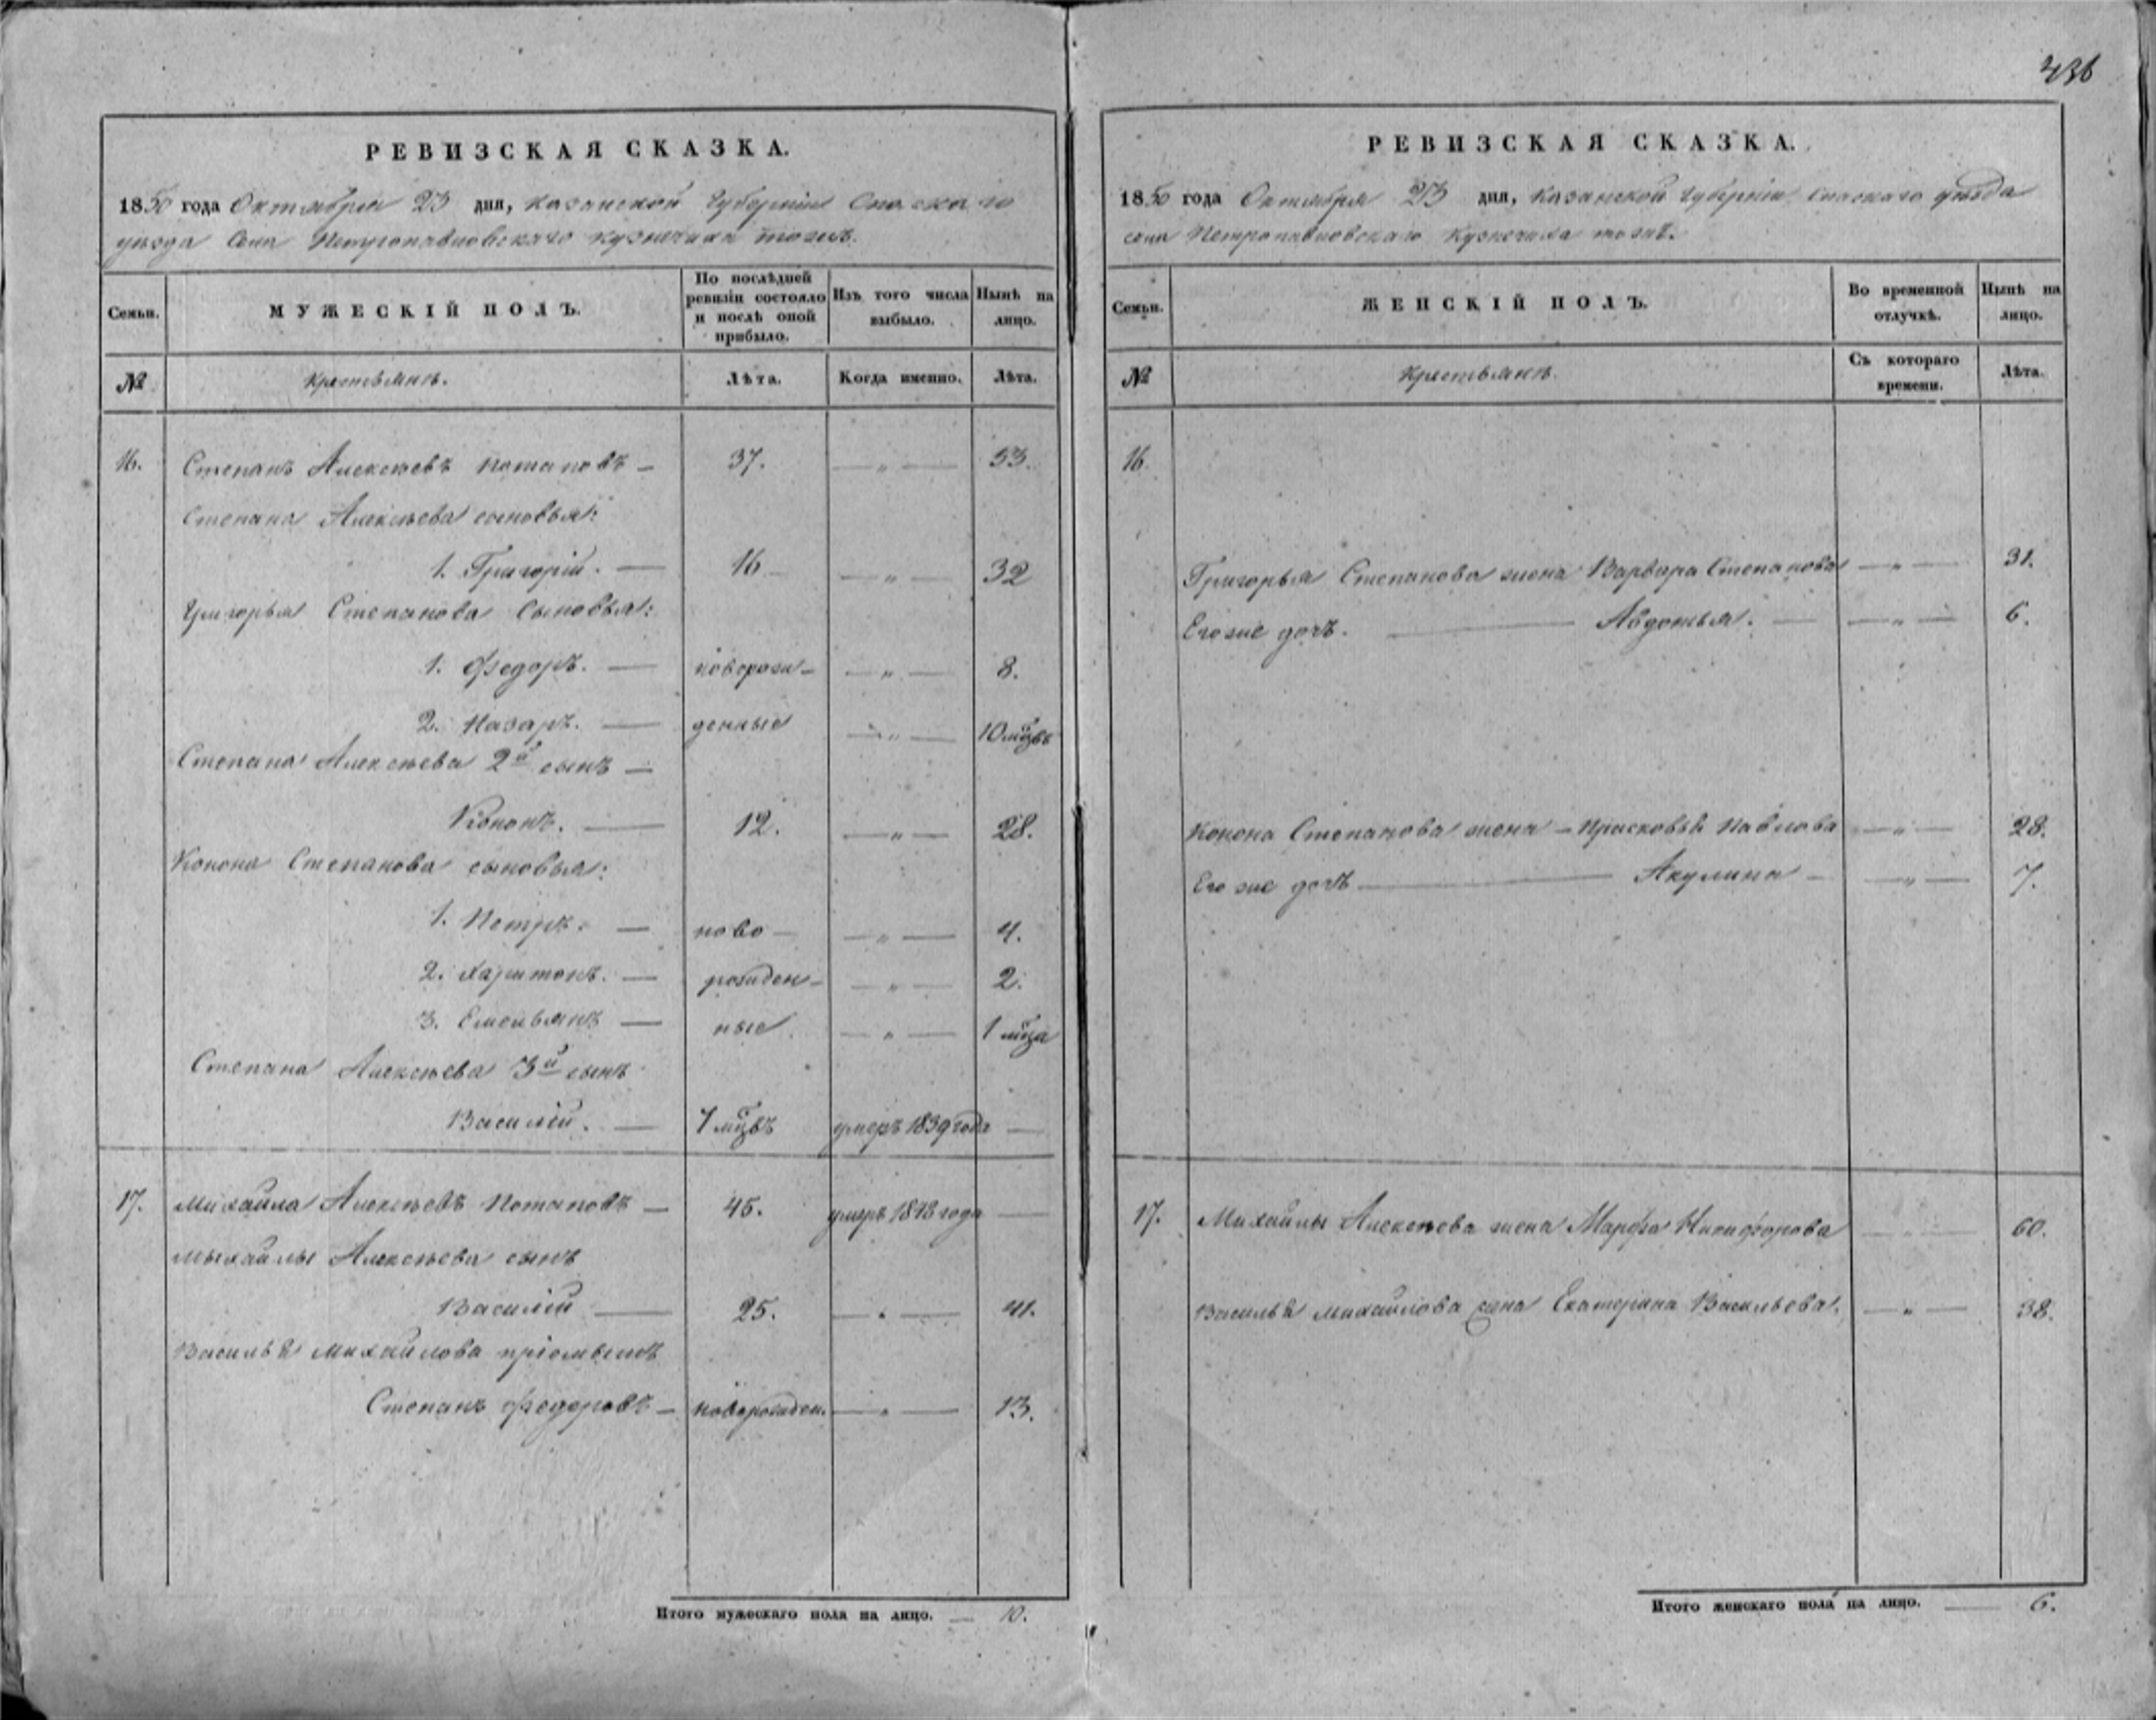 436
РЕВИЗСКАЯ СКАЗКА.
1850 года Октября 23 дня, Казанской Губернии Спаскаго
уезда Села Петропавловскаго Кузнечиха тожъ.
Семьи.
МУЖЕСКІЙ ПОЛЪ.
По послѣдней ревизіи состояло и послѣ оной прибыло.
Изъ того числа выбыло.
Нынѣ на лицо.
№
Крестьянъ.
Лѣта.
Когда именно.
Лѣта.
16. Степанъ Алексѣевъ Потаповъ — 37. — " — 53.
Степана Алексѣева сыновья:
1. Григорій. — 16 — " — 32
Григорья Степанова Сыновья:
1. Федоръ. — новорож- — " — 8.
2. Назаръ. — денные — " — 10 мцвъ
Степана Алексѣева 2й сынъ —
Кононъ. — 12. — " — 28.
Конона Степанова сыновья:
1. Петръ. — ново — — " — 4.
2. Харитонъ. — рожден- — " — 2.
3. Емельянъ — ные — " — 1 мца
Степана Алексѣева 3й сынъ
Василій. — 7 мцвъ умеръ 1839 года —
17. Михайла Алексѣевъ Потаповъ — 45. умеръ 1848 года —
Михайлы Алексѣева сынъ
Василій — 25. — " — 41.
Василья Михайлова пріемышъ
Степанъ Федоровъ — новорожден. — " — 13.
Итого мужескаго пола на лицо. — 10.
РЕВИЗСКАЯ СКАЗКА.
1850 года Октября 23 дня, Казанской Губерніи Спаскаго уѣзда
села Петропавловскаго Кузнечиха тожъ.
Семьи.
ЖЕНСКІЙ ПОЛЪ.
Во временной отлучкѣ.
Нынѣ на лицо.
№
Крестьянъ.
Съ котораго времени.
Лѣта.
16.
Григорья Степанова жена Варвара Степанова — " — 31.
Его же дочь. — Авдотья. — — " — 6.
Конона Степанова жена — Прасковья Павлова — " — 28.
Его же дочь — Акулина — — " — 7.
17. Михайлы Алексѣева жена Марфа Никифорова — " — 60.
Василья Михайлова жена Екатерина Васильева. — " — 38.
Итого женскаго пола на лицо. — 6.